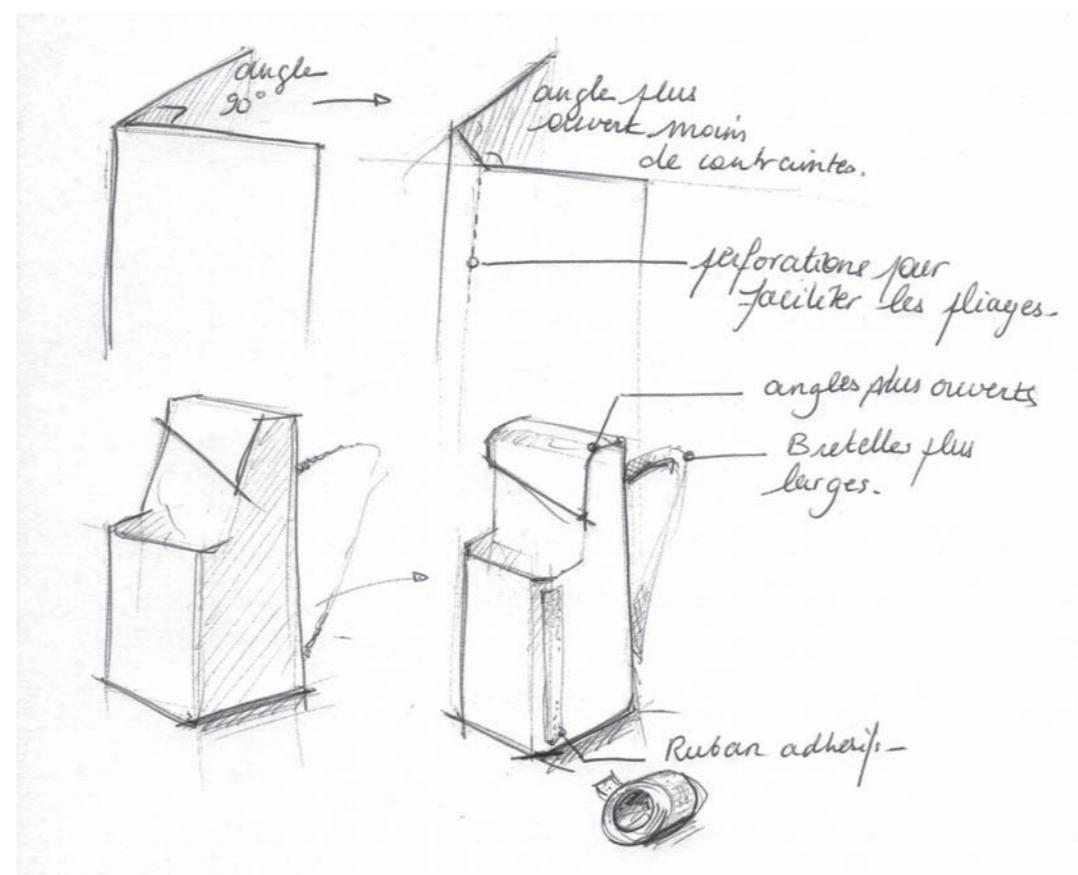 angle
90°
angle plus
ouvert moins
de contraintes.
perforations pour
faciliter les pliages-
angles plus ouverts
Bretelles plus
larges-
Ruban adhésif-